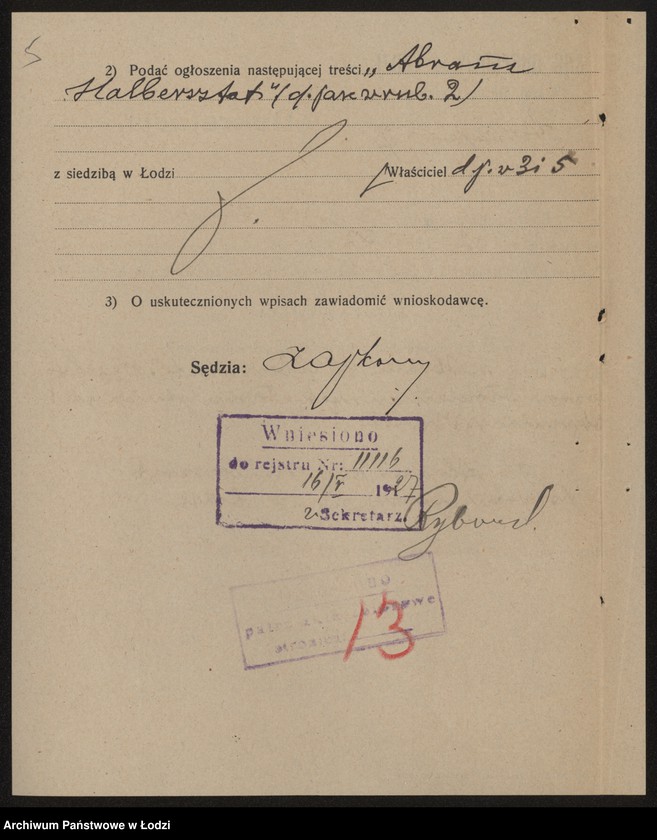 5
2) Podać ogłoszenia następującej treści „Abram
Halbersztat" (d. jak w rub. 2)
z siedzibą w Łodzi
Właściciel d. j. w 3 i 5
3) O uskutecznionych wpisach zawiadomić wnioskodawcę.
Sędzia:
Wniesiono
do rejstru Nr: 11116
16/V 1927
Sekretarz
13
Archiwum Państwowe w Łodzi